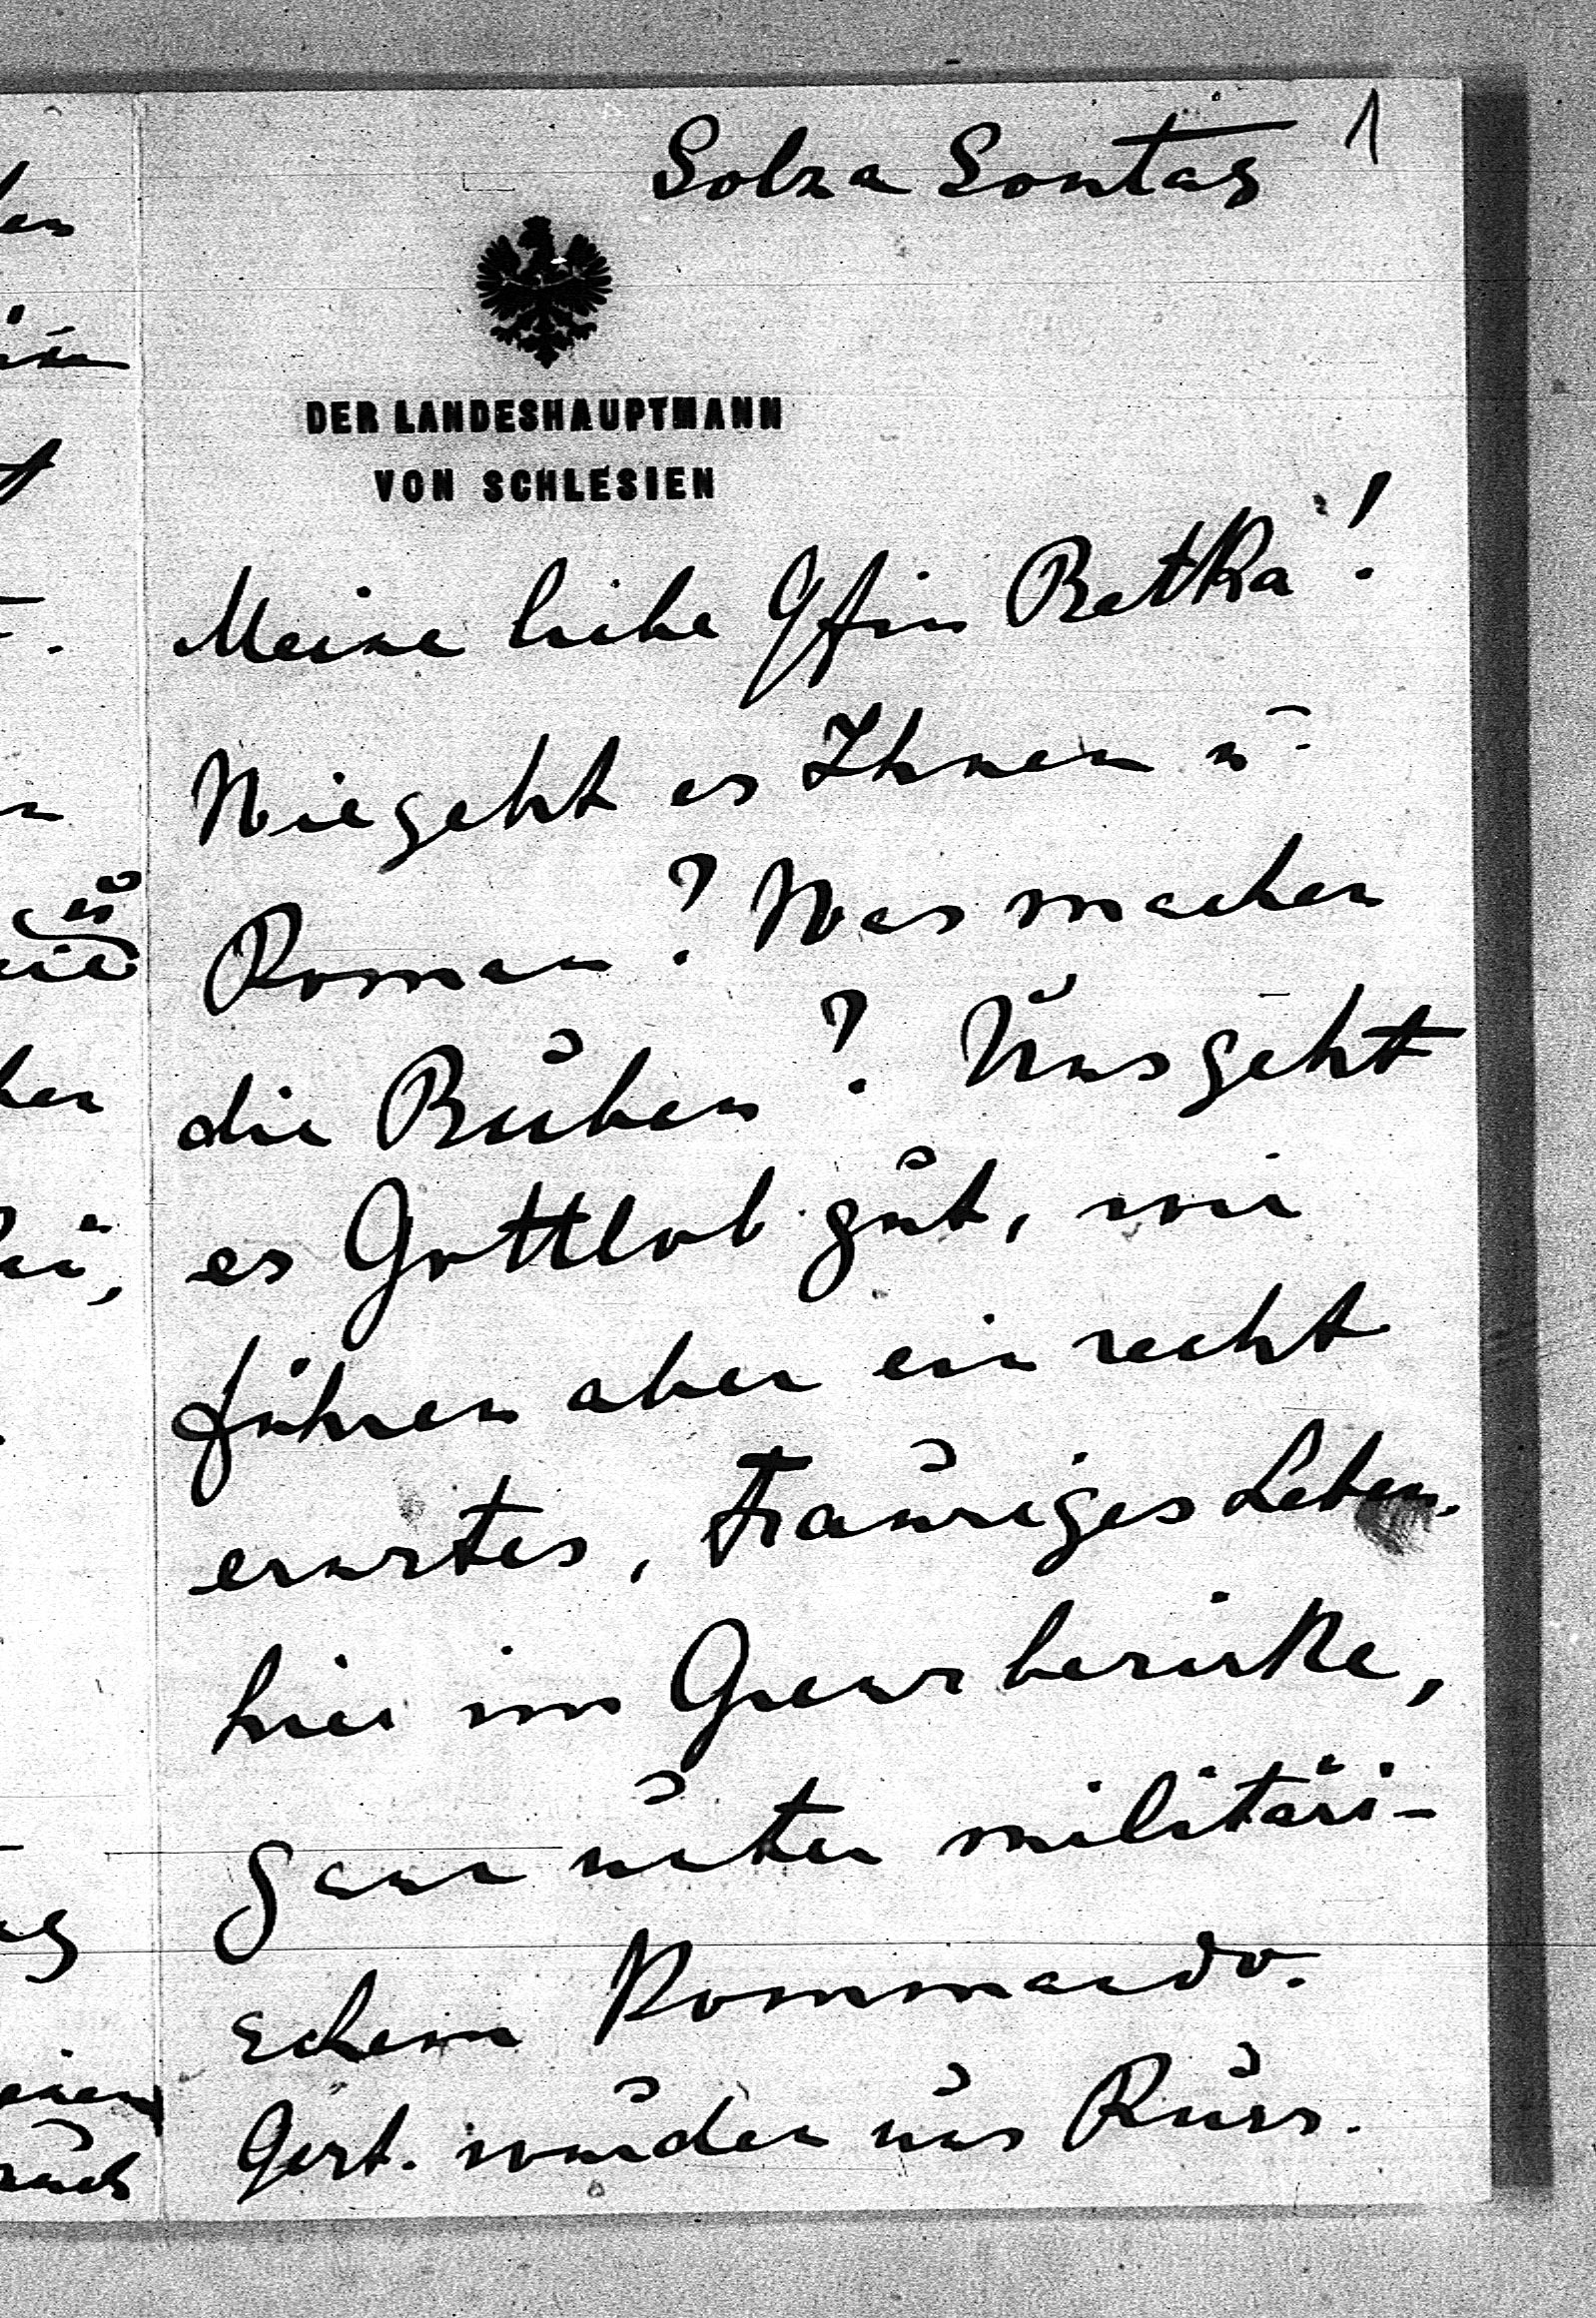 Solza Sontag 1
DER LANDESHAUPTMANN
VON SCHLESIEN
Meine liebe Gfin Betka!
Wie geht es Ihnen u
Roman? Was machen
die Buben? Uns geht
es Gottlob gut, wir
führen aber ein recht
ernstes, trauriges Leben
hier im Grenzbezirke,
ganz unter militäri-
schem Kommando.
Gest. wurden uns Russ.